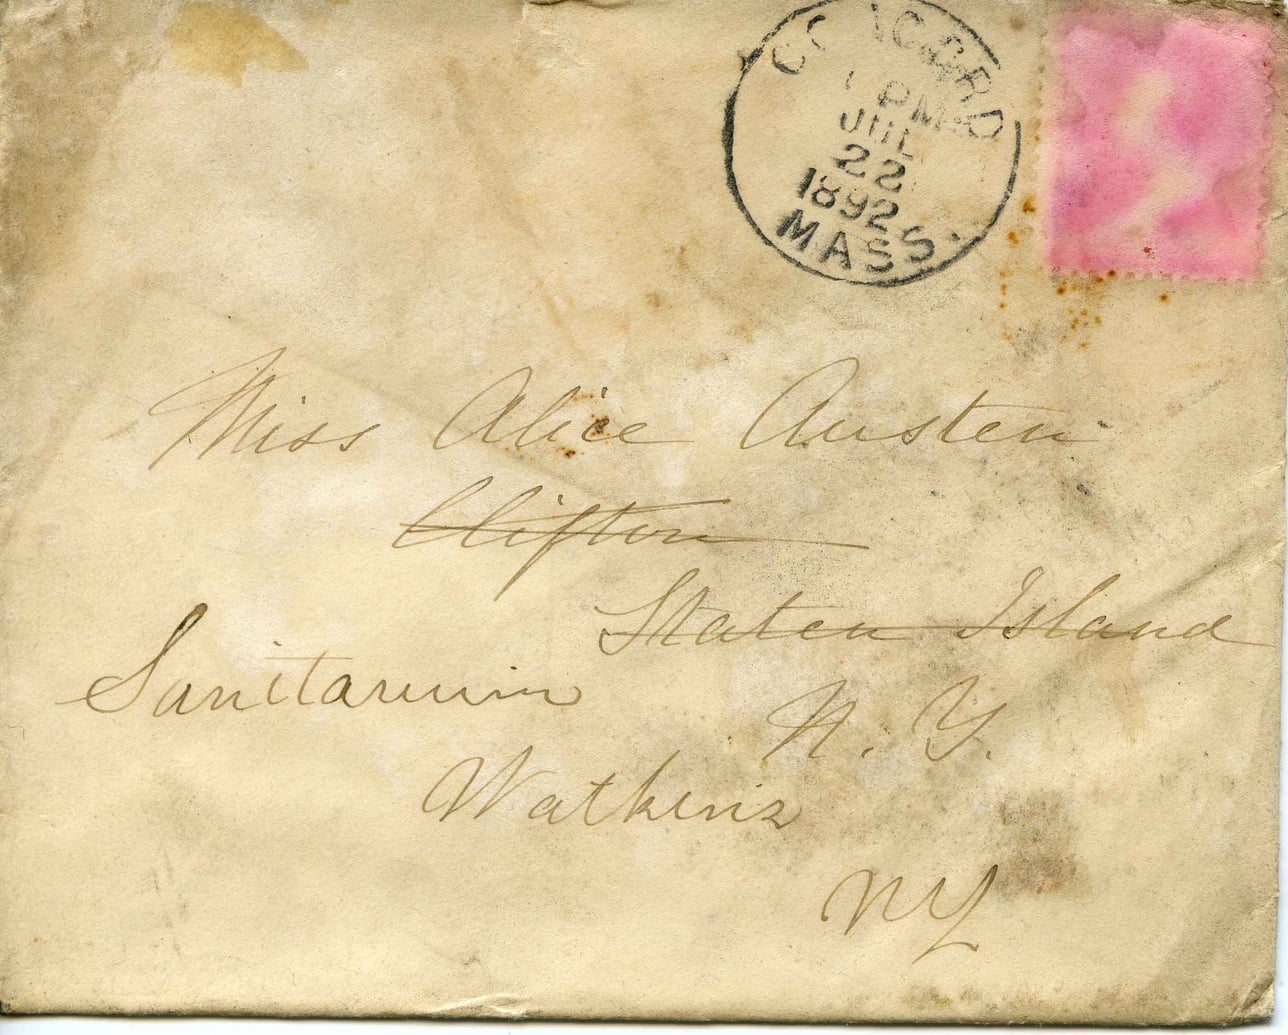 CONCORD
PM
JUL
22
1892
MASS.
Miss Alice Austen
Clifton
Staten Island
N. Y.
Sanitarium
Watkins
NY